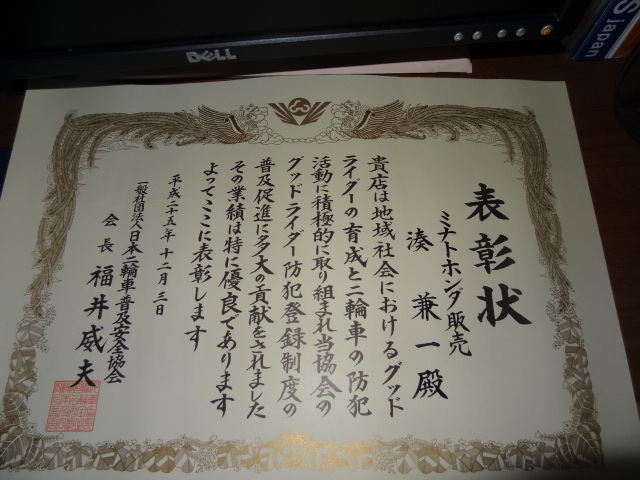 DELL
S
japan
表彰状
ミナトホンダ販売
湊 兼一殿
貴店は地域社会におけるグッド
ライダーの育成と二輪車の防犯
活動に積極的に取り組まれ当協会の
グッドライダー防犯登録制度の
普及促進に多大の貢献をされました
その業績は特に優良であります
よってここに表彰します
平成二十五年 十二月 三日
一般社団法人日本二輪車普及安全協会
会長 福井威夫